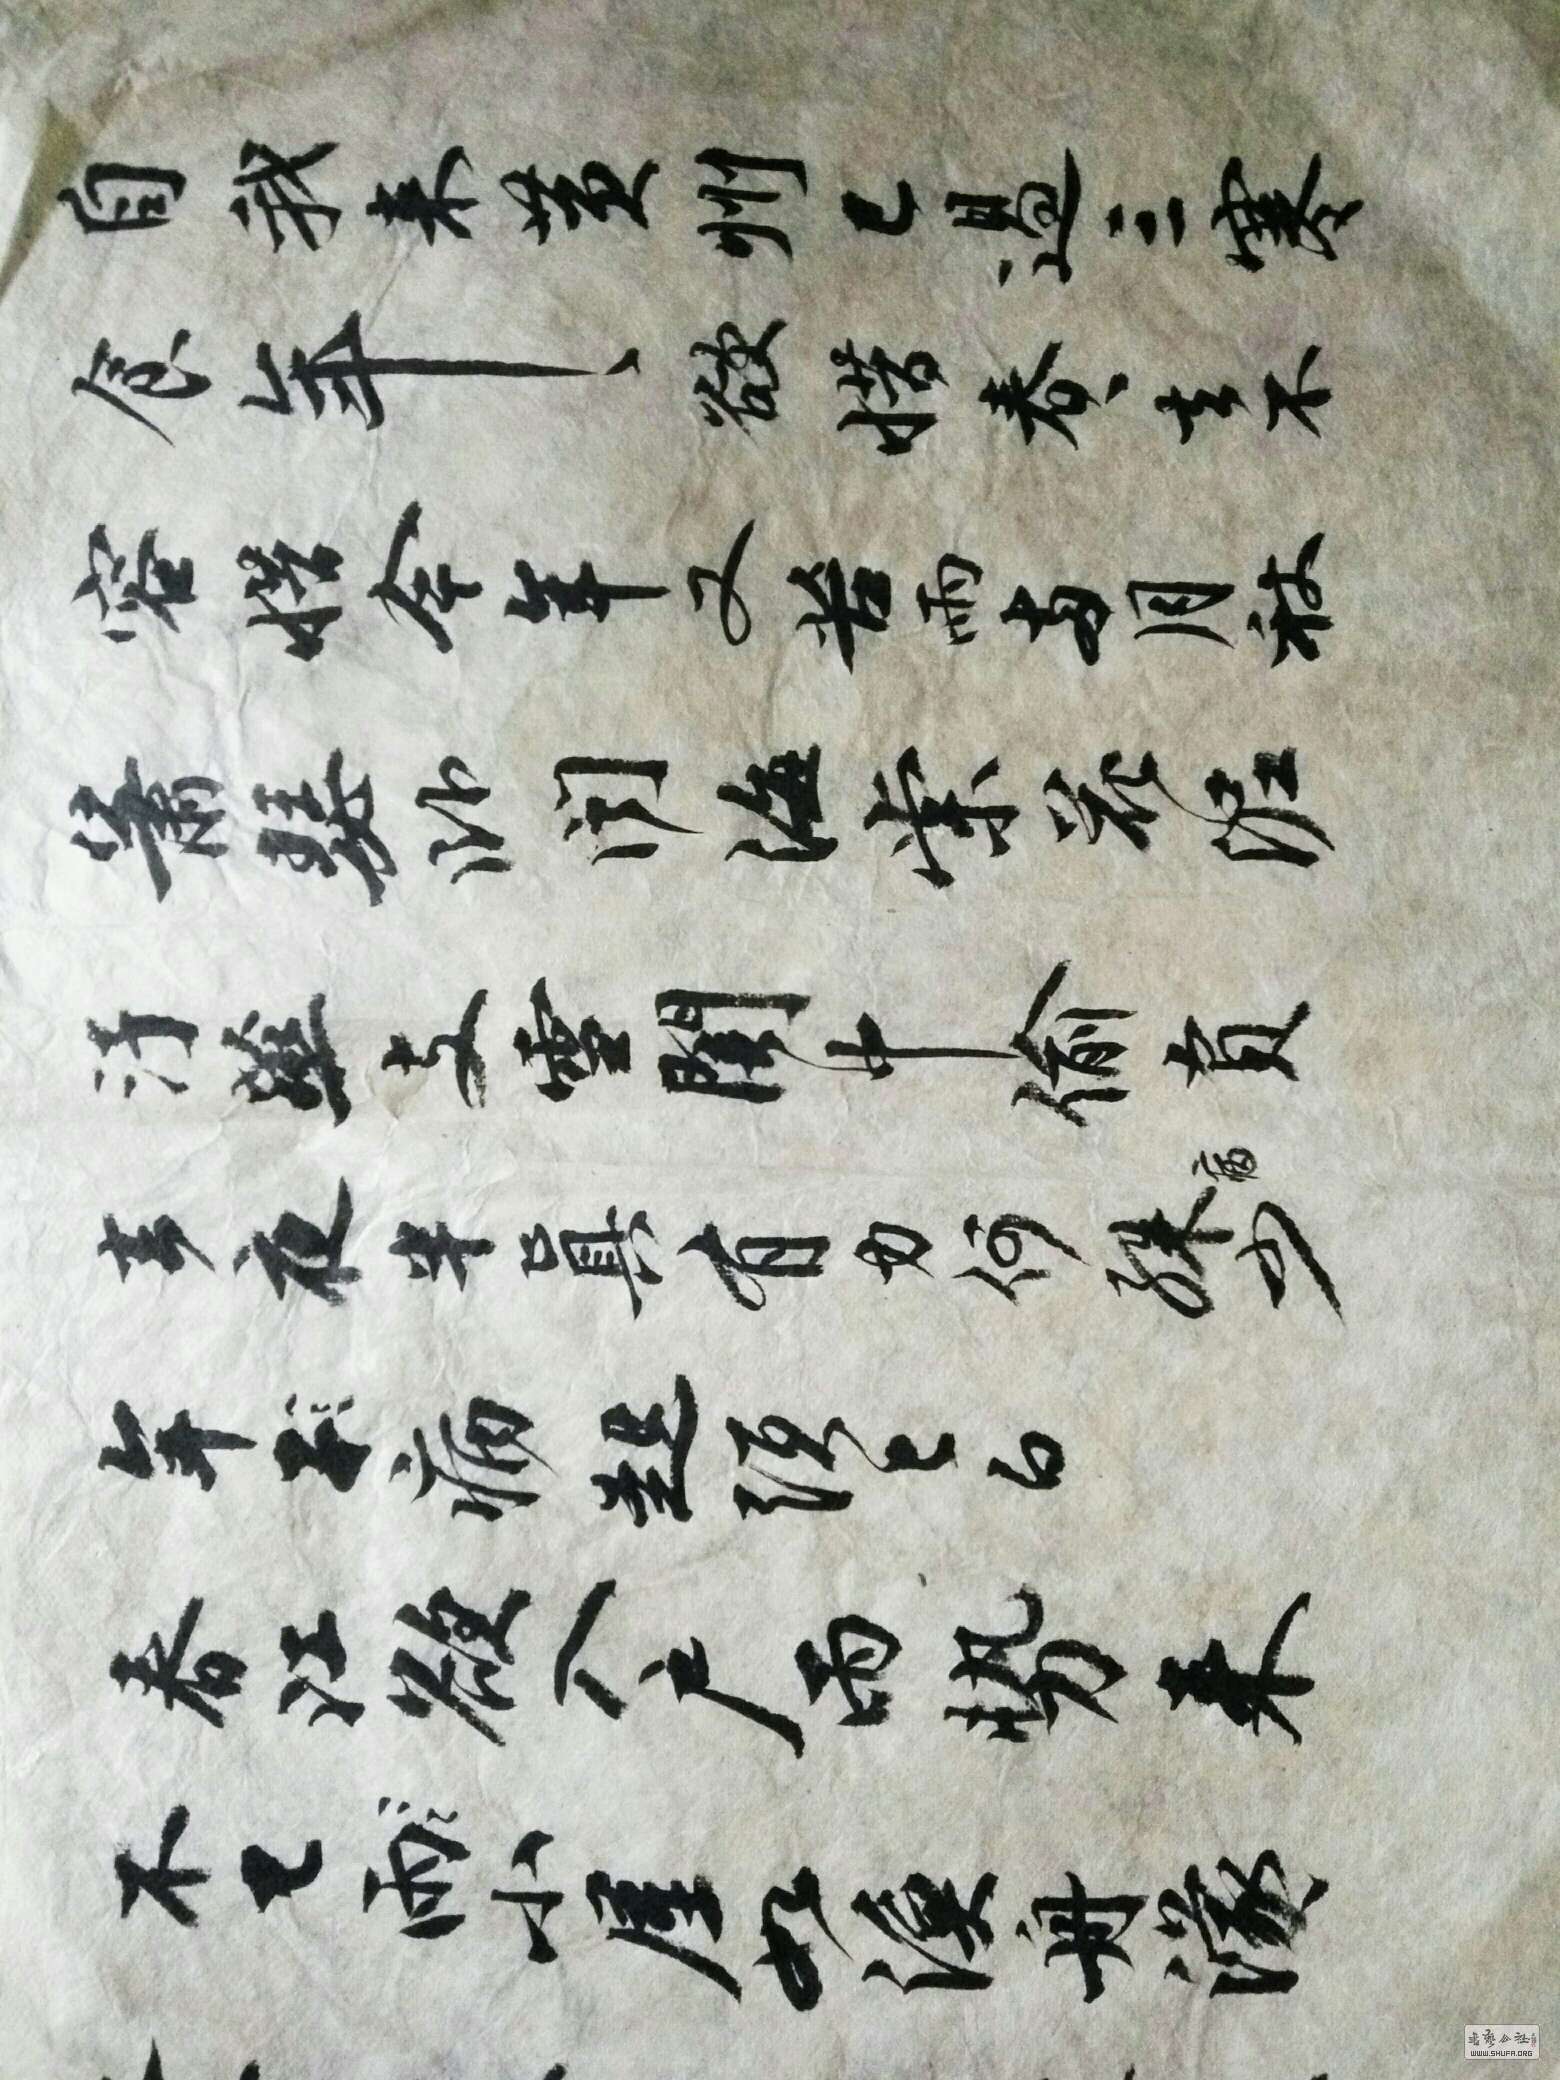 自我來黃州已過三寒
食年、欲惜春、去不
容惜今年又苦雨兩月秋
蕭瑟臥聞海棠花泥
汙燕支雪闇中偷負
去夜半真有力何殊病少
年子病起須已白
春江欲入戶雨勢來
不已雨小屋如漁舟濛
WWW.SHUFA.ORG